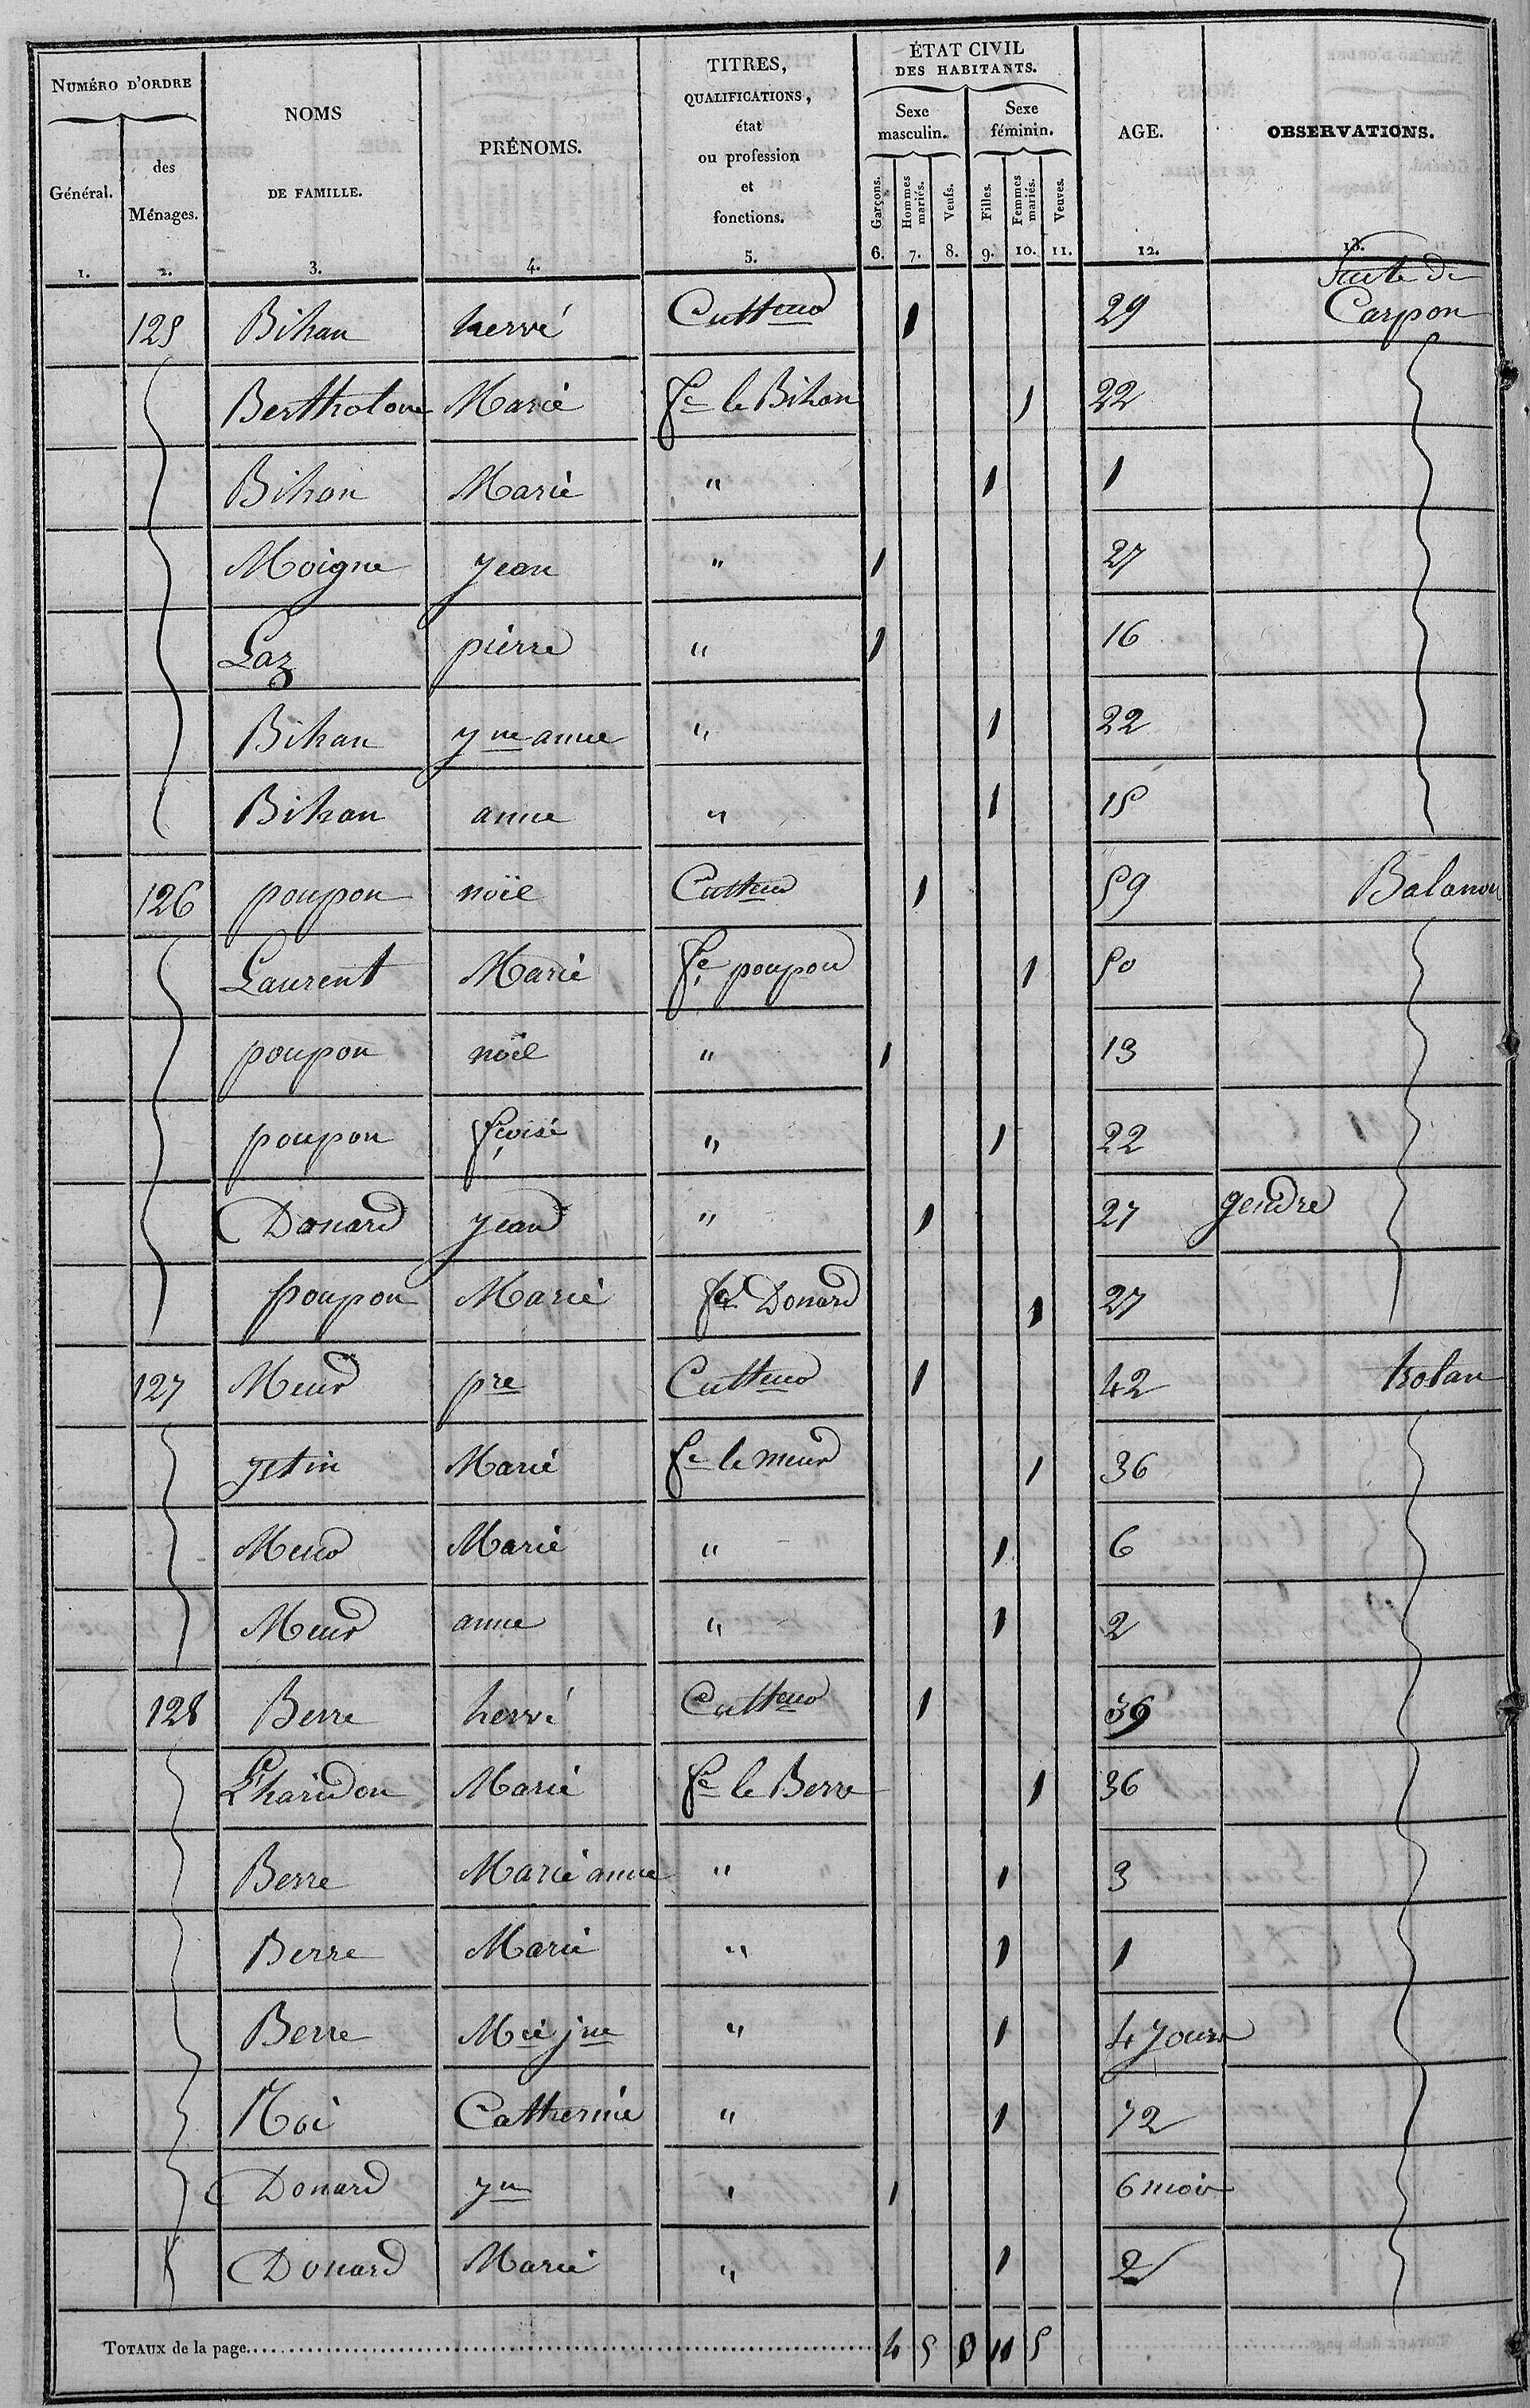 NUMÉRO D'ORDRE
Général.
des
Ménages.
NOMS
DE FAMILLE.
PRÉNOMS.
TITRES,
QUALIFICATIONS,
état
ou profession
et
fonctions.
ÉTAT CIVIL
DES HABITANTS.
Sexe masculin.
Sexe féminin.
Garçons.
Hommes mariés.
Veufs.
Filles.
Femmes mariées.
Veuves.
AGE.
OBSERVATIONS.
1. 2. 3. 4. 5. 6. 7. 8. 9. 10. 11. 12. 13.
Suite de
125 Bihan hervé Cultteur 1 29 Carpon
Bertholome Marie fe le Bihan 1 22
Bihan Marie " 1 1
Moigne jean " 1 27
Laz pierre " 1 16
Bihan yve anne " 1 22
Bihan anne " 1 15
126 poupon noël Cultteur 1 59 Balanou
Laurent Marie fe poupon 1 50
poupon noël " 1 13
poupon fçoise " 1 22
Donard jean " 1 27 gendre
poupon Marie fe Donard 1 27
127 Meur pre Cultteur 1 42 trolan
jetin Marie fe le meur 1 36
Meur Marie " 1 6
Meur anne " 1 2
128 Berre hervé Cultteur 1 39
L'haridon Marie fe le Berre 1 36
Berre Marie anne " 1 3
Berre Marie " 1 1
Berre Mie jne " 1 4 jours
Moi Catherine " 1 72
Donard yn " 1 6 mois
Donard Marie " 1 2
TOTAUX de la page 4 5 0 11 5